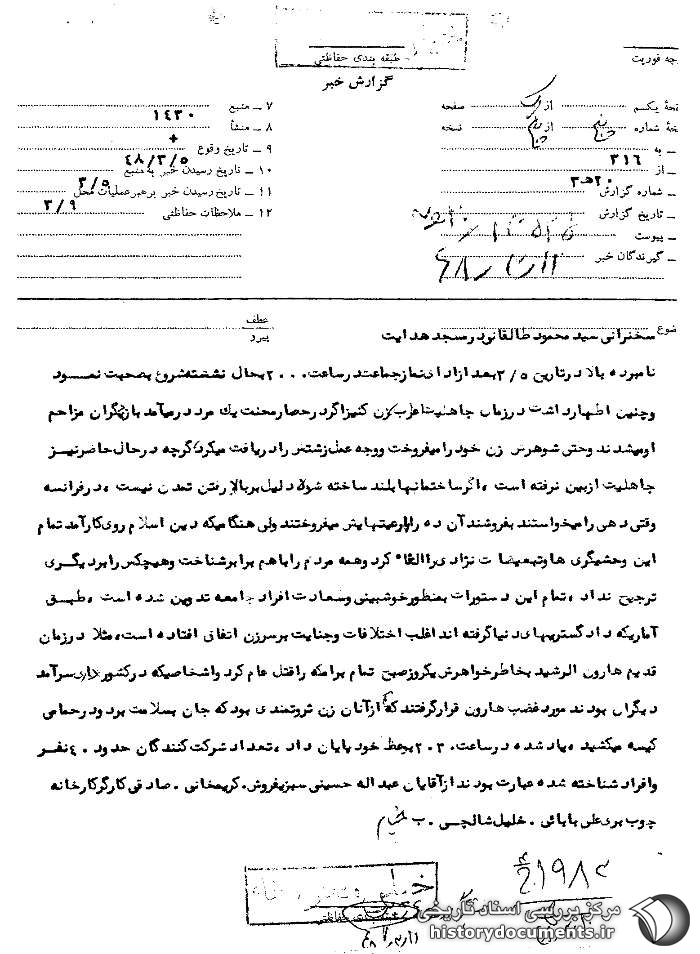 طبقه بندی حفاظتی
گزارش خبر
جه فوریت
حهٔ یکم از صفحه
حهٔ شماره از نسخه
ـ به
ـ از ۳۱۶
ـ شماره گزارش ۲۰هـ۳
ـ تاریخ گزارش
ـ پیوست
ـ گیرندگان خبر
۷ ـ منبع ۱۴۳۰
۸ ـ منشأ +
۹ ـ تاریخ وقوع ۴۸/۳/۵
۱۰ ـ تاریخ رسیدن خبر به منبع ۳/۵
۱۱ ـ تاریخ رسیدن خبر برهبر عملیات محل ۳/۹
۱۲ ـ ملاحظات حفاظتی
عطف
پیرو
ضوع سخنرانی سید محمود طالقانی در مسجد هدایت
نامبرده بالا در تاریخ ۳/۵ بعد از ادای نماز جماعت در ساعت ۲۰۰۰ بحال نشسته شروع بصحبت نمود
و چنین اظهار داشت در زمان جاهلیت اعراب زن کنیز اگر در حصار محنت یك مرد در میآمد بازیگران مزاحم
او میشدند و حتی شوهرش زن خود را میفروخت و وجه عمل زشتش را دریافت میکرد گرچه در حال حاضر نیز
جاهلیت از بین نرفته است ، اگر ساختمانها بلند ساخته شود دلیل بر بالا رفتن تمدن نیست ، در فرانسه
وقتی دهی را میخواستند بفروشند آن ده را با رعیتهایش میفروختند ولی هنگامیکه دین اسلام روی کار آمد تمام
این وحشیگری ها و تبعیضات نژادی را الغاء کرد و همه مردم را با هم برابر شناخت و هیچکس را بر دیگری
ترجیح نداد ، تمام این دستورات بمنظور خوشبینی و سعادت افراد جامعه تدوین شده است ، طبق
آماریکه دادگستریهای دنیا گرفته اند اغلب اختلافات و جنایت بر سر زن اتفاق افتاده است ، مثلا در زمان
قدیم هارون الرشید بخاطر خواهرش یکروز صبح تمام برامکه را قتل عام کرد و اشخاصیکه در کشورداری سرآمد
دیگران بودند مورد غضب هارون قرار گرفتند که از آنان زن ثروتمندی بود که جان بسلامت برد و در حمامی
کیسه میکشید ، یاد شده در ساعت ۲۰۳۰ بوعظ خود پایان داد ، تعداد شرکت کنندگان حدود ۴۰ نفر
و افراد شناخته شده عبارت بودند از آقایان عبداله حسینی سبزیفروش . کریمخانی . صادقی کارگر کارخانه
چوب بری علی بابائی . خلیل شالچی . ب
مرکز بررسی اسناد تاریخی
historydocuments.ir